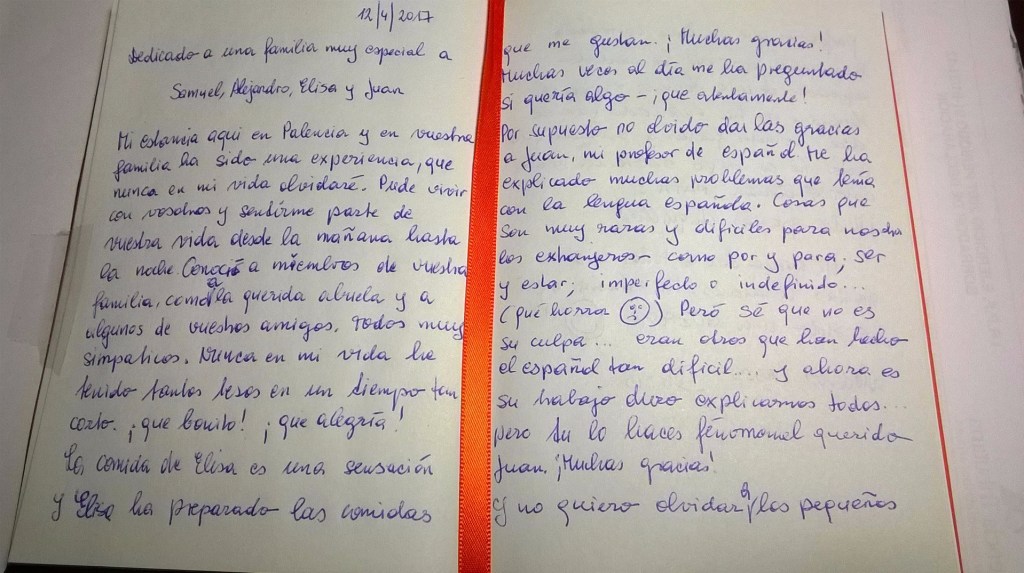 12/4/2017
Dedicado a una familia muy especial a
Samuel, Alejandro, Elisa y Juan
Mi estancia aqui en Palencia y en vuestra
familia ha sido una experiencia, que
nunca en mi vida olvidaré. Pude vivir
con vosotros y sentirme parte de
vuestra vida desde la mañana hasta
la noche. Conocí a miembros de vuestra
familia, como a la querida abuela y a
algunos de vuestros amigos. Todos muy
simpaticos. Nunca en mi vida he
tenido tantos besos en un tiempo tan
corto. ¡que bonito! ¡que alegría!
La comida de Elisa es una sensación
y Elisa ha preparado las comidas
que me gustan. ¡Muchas gracias!
Muchas veces al día me ha preguntado
si quería algo - ¡que
Por supuesto no olvido dar las gracias
a Juan, mi profesor de español. Me ha
explicado muchas problemas que tenía
con la lengua española. Cosas que
son muy raras y dificiles para nostra
los extranjeros - como por y para; ser
y estar; imperfecto o indefinido...
(qué horror) Peró sé que no es
su culpa... eran otros que han hecho
el español tan dificil.... y ahora es
su trabajo duro explicarnos todos...
pero tu lo haces fenomenal querido
Juan. ¡Muchas gracias!
Y no quiero olvidar a los pequeños